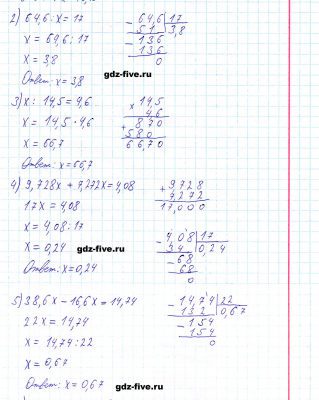 2) 64,6 : x = 17
x = 64,6 : 17
x = 3,8
Ответ: x = 3,8
- 64,6 | 17
51 | 3,8
- 136
136
0
gdz-five.ru
3) x : 14,5 = 4,6
x = 14,5 · 4,6
x = 66,7
Ответ: x = 66,7
x 14,5
4,6
+ 870
580
66,70
4) 9,728x + 7,272x = 4,08
17x = 4,08
x = 4,08 : 17
x = 0,24
Ответ: x = 0,24
+ 9,728
7,272
17,000
gdz-five.ru
- 4,08 | 17
34 | 0,24
- 68
68
0
5) 38,6x - 16,6x = 14,74
22x = 14,74
x = 14,74 : 22
x = 0,67
Ответ: x = 0,67
- 14,74 | 22
132 | 0,67
- 154
154
0
gdz-five.ru